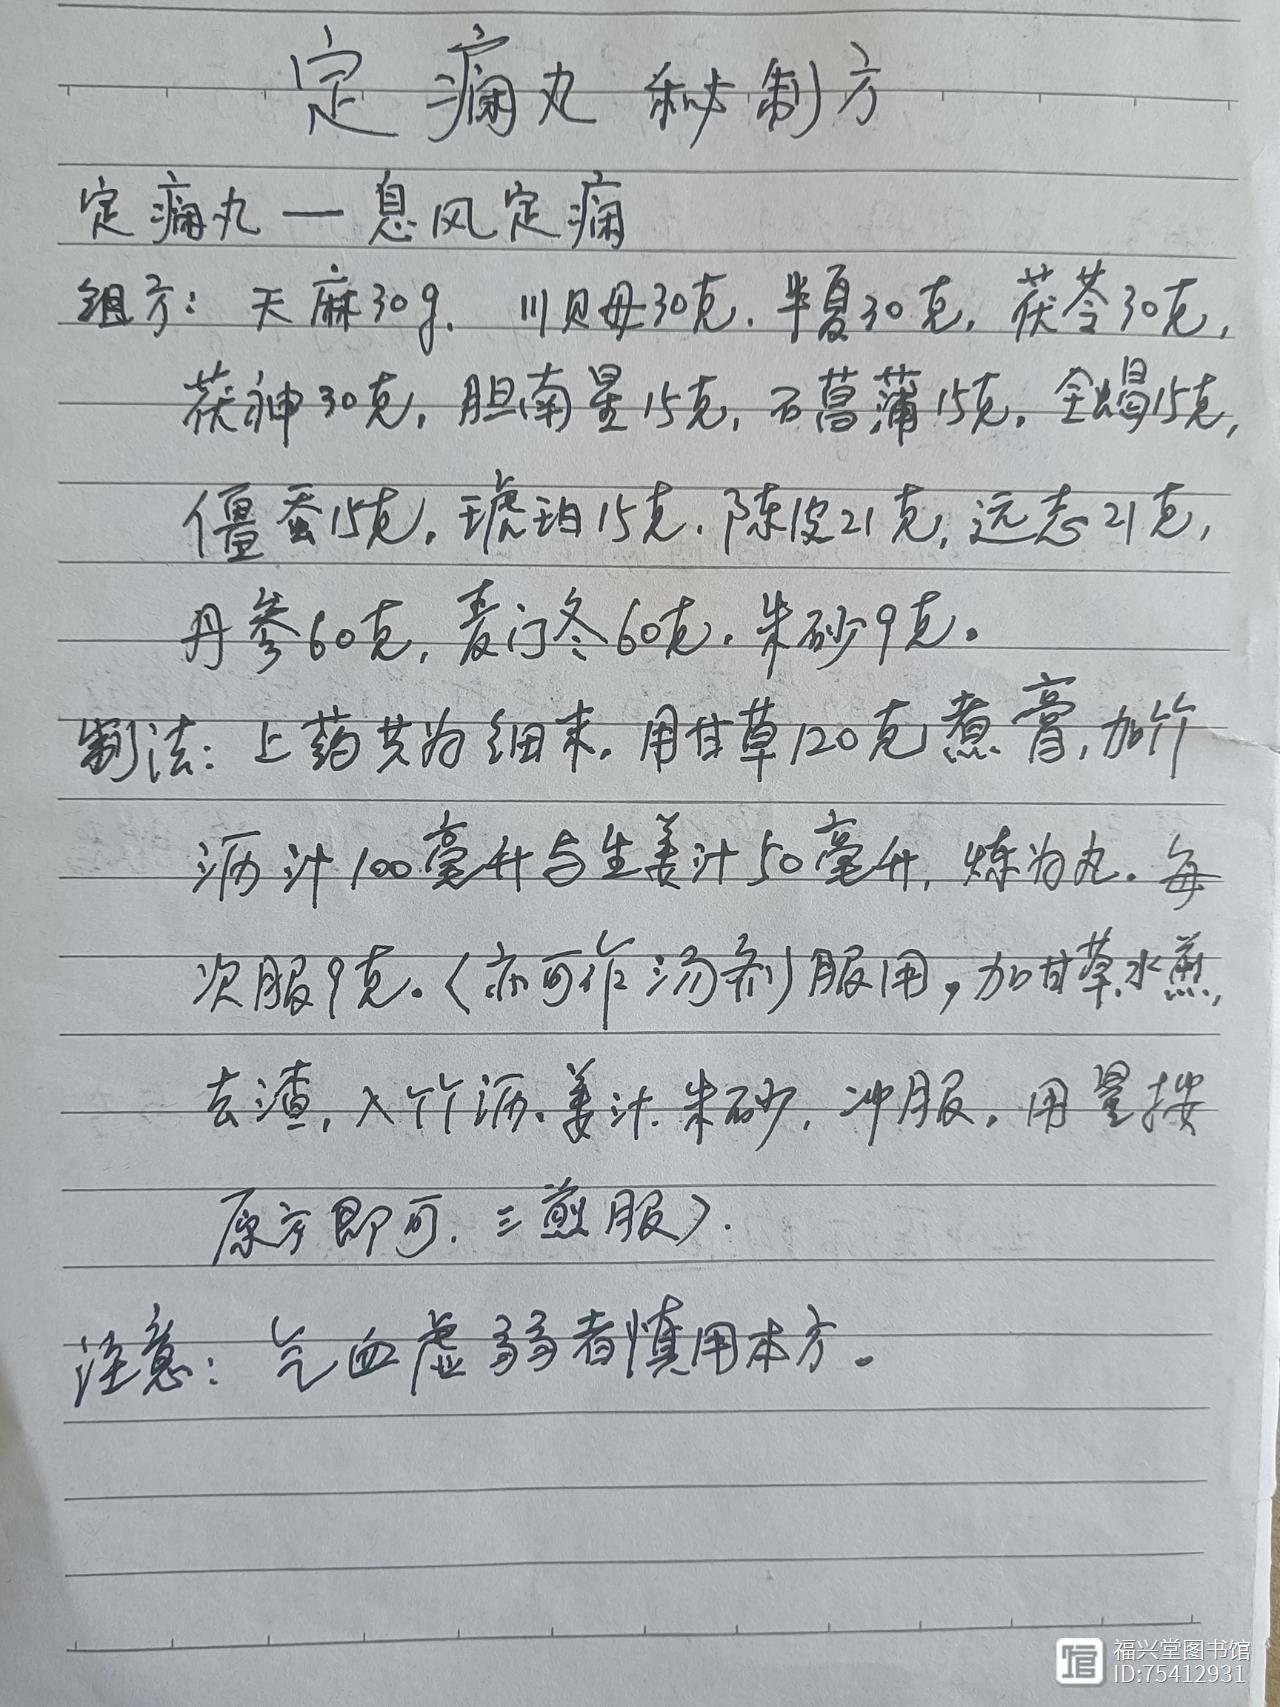 定痫丸秘制方
定痫丸一息风定痫
组方：天麻30g、川贝母30克、半夏30克，茯苓30克，
茯神30克，胆南星15克，石菖蒲15克，全蝎15克，
僵蚕15克，琥珀15克，陈皮21克，远志21克，
丹参60克，麦门冬60克，朱砂9克。
制法：上药共为细末，用甘草120克煮膏，加竹
沥汁100毫升与生姜汁50毫升，炼为丸。每
次服9克。（亦可作汤剂服用，加甘草水煎，
去渣，入竹沥、姜汁、朱砂，冲服。用量按
原方即可，三煎服）.
注意：气血虚弱者慎用本方。
福兴堂图书馆
ID:75412931